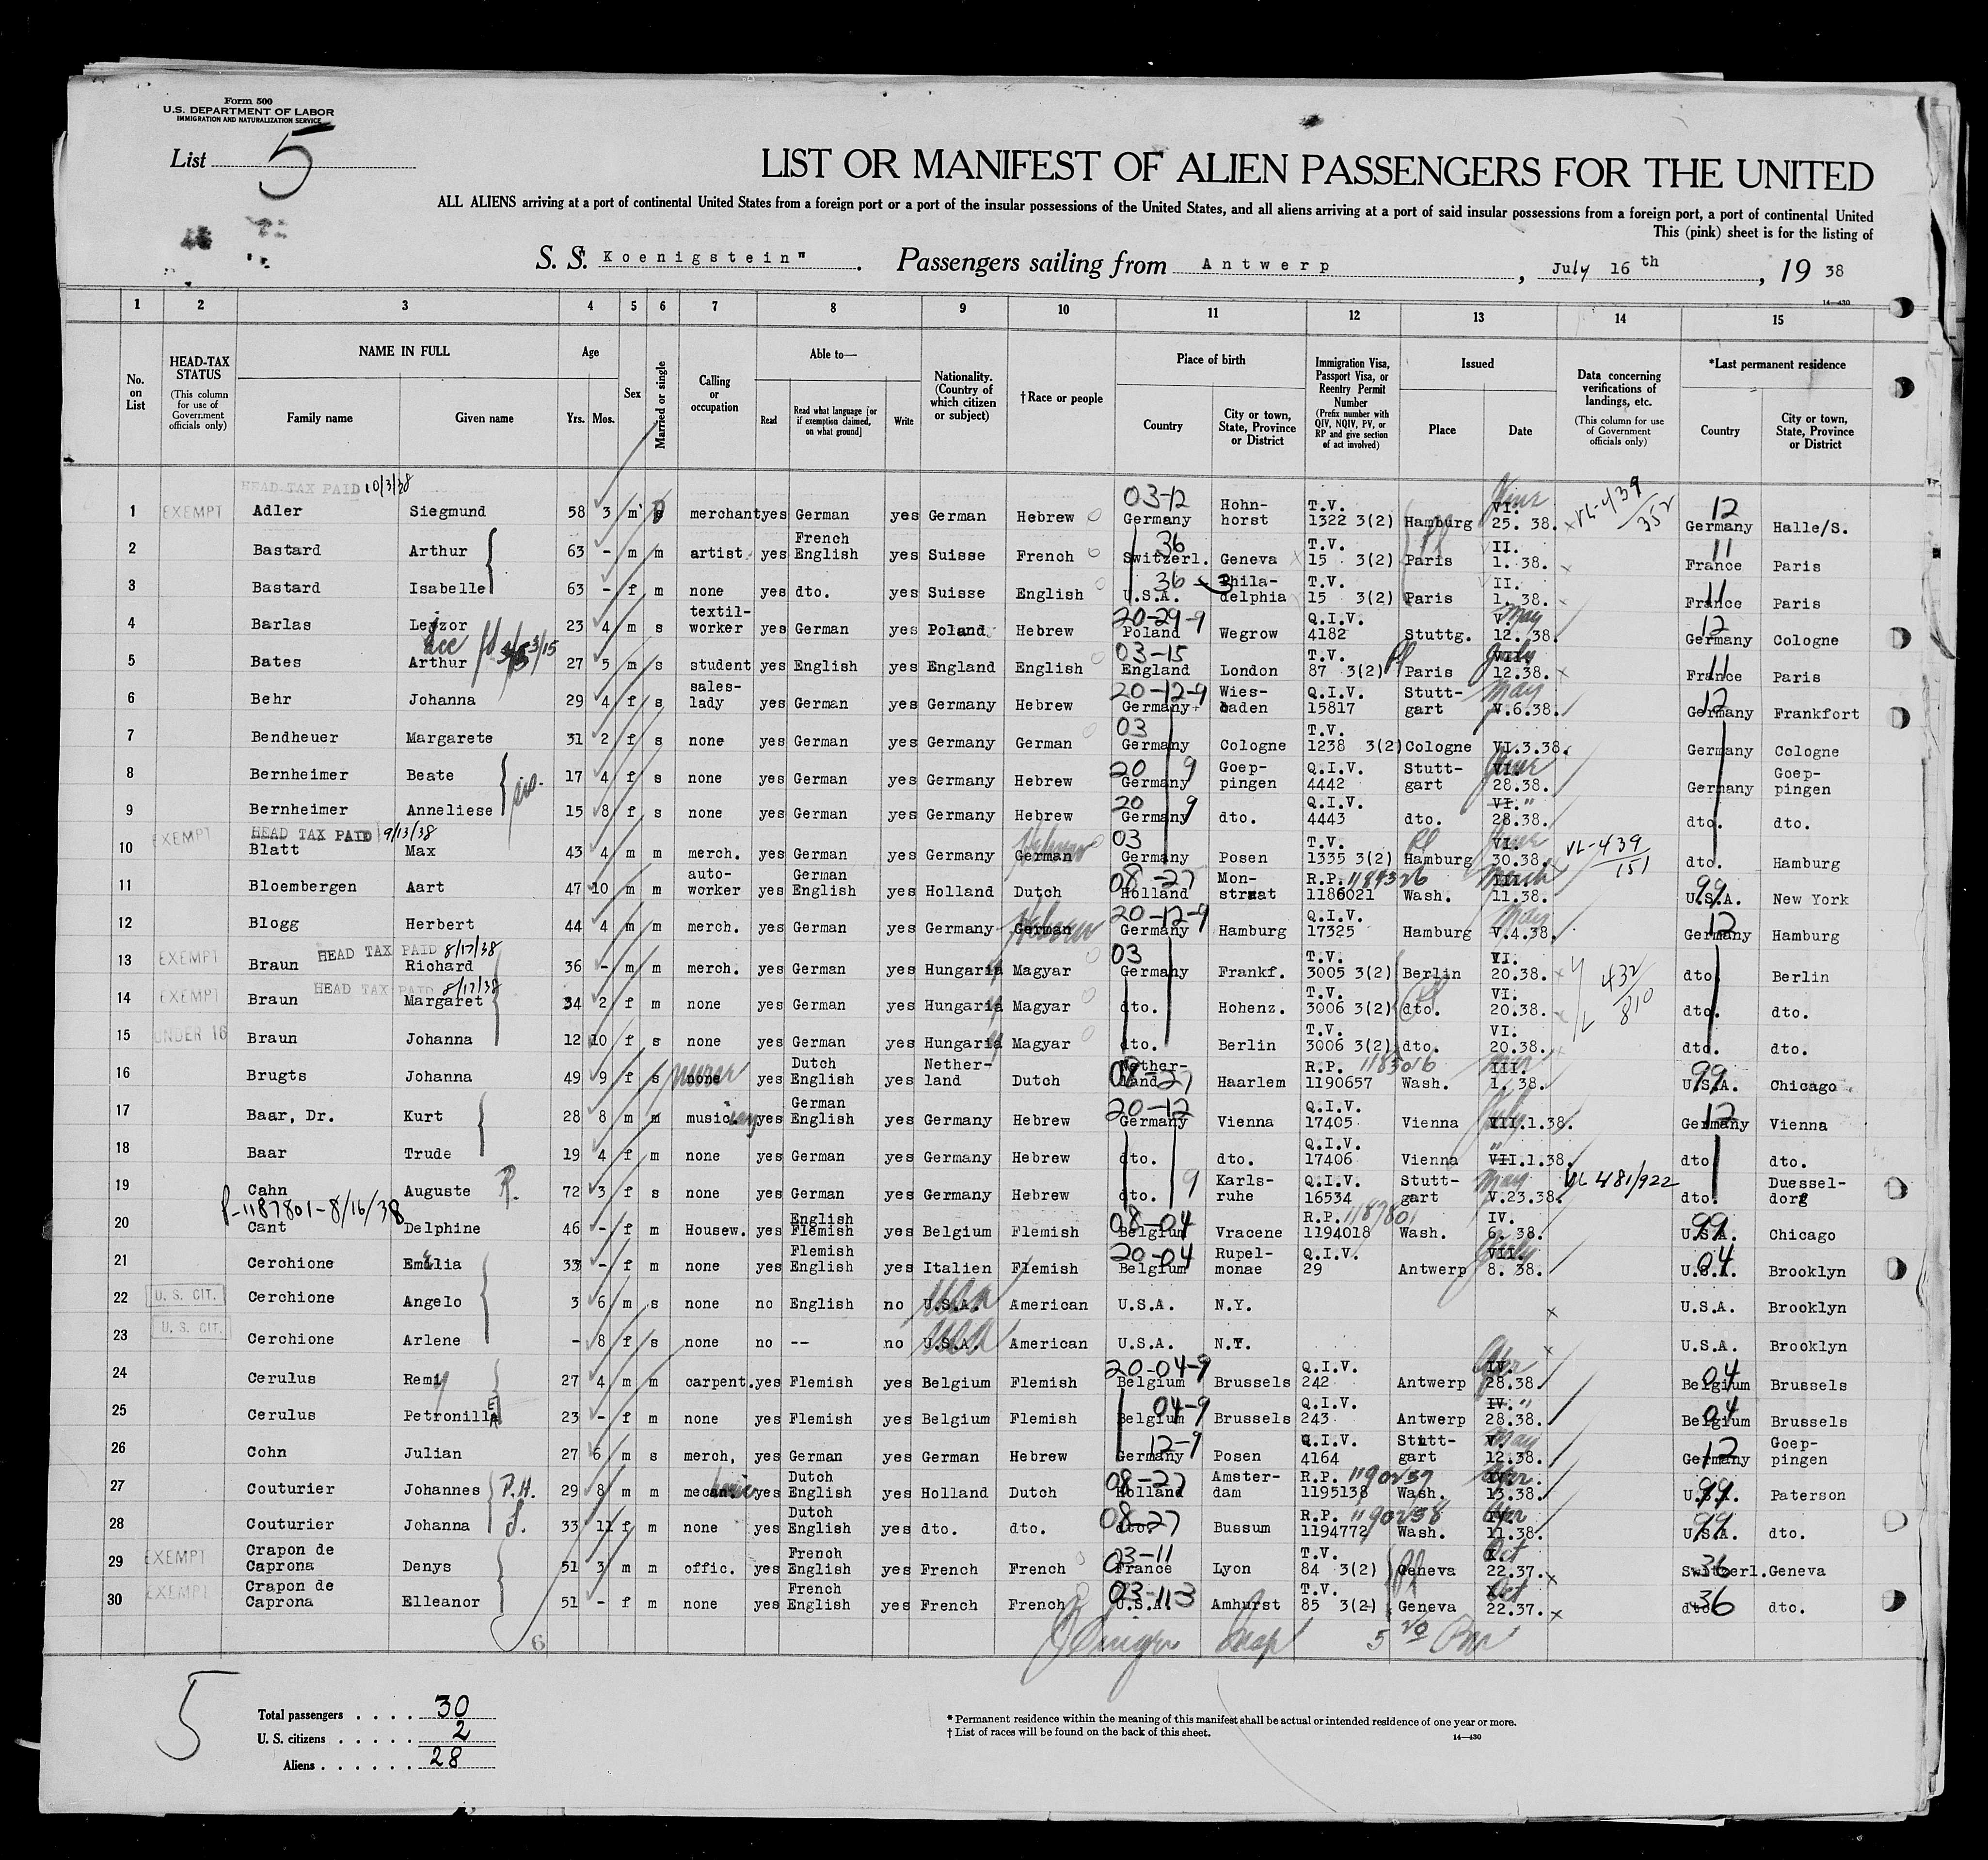 Form 500
U.S. DEPARTMENT OF LABOR
IMMIGRATION AND NATURALIZATION SERVICE
List 5
LIST OR MANIFEST OF ALIEN PASSENGERS FOR THE UNITED
ALL ALIENS arriving at a port of continental United States from a foreign port or a port of the insular possessions of the United States, and all aliens arriving at a port of said insular possessions from a foreign port, a port of continental United
This (pink) sheet is for the listing of
S. S. "Koenigstein". Passengers sailing from Antwerp, July 16th, 1938
14—430
1 2 3 4 5 6 7 8 9 10 11 12 13 14 15
No. on List
HEAD-TAX STATUS (This column for use of Government officials only)
NAME IN FULL Family name Given name
Age Yrs. Mos.
Sex
Married or single
Calling or occupation
Able to— Read Read what language [or if exemption claimed, on what ground] Write
Nationality. (Country of which citizen or subject)
†Race or people
Place of birth Country City or town, State, Province or District
Immigration Visa, Passport Visa, or Reentry Permit Number (Prefix number with QIV, NQIV, PV, or RP and give section of act involved)
Issued Place Date
Data concerning verifications of landings, etc. (This column for use of Government officials only)
*Last permanent residence Country City or town, State, Province or District
HEAD TAX PAID 10/3/38
1 EXEMPT Adler Siegmund 58 3 m s merchant yes German yes German Hebrew 03-12 Germany Hohn-horst T.V. 1322 3(2) Hamburg June VI. 25. 38. VL-439/352 12 Germany Halle/S.
2 Bastard Arthur 63 - m m artist yes French English yes Suisse French 36 Switzerl. Geneva T.V. 15 3(2) Paris II. 1. 38. 11 France Paris
3 Bastard Isabelle 63 - f m none yes dto. yes Suisse English 36-3 U.S.A. Phila-delphia T.V. 15 3(2) Paris II. 1. 38. 11 France Paris
4 Barlas Lejzor 23 4 m s textil-worker yes German yes Poland Hebrew 20-29-9 Poland Wegrow Q.I.V. 4182 Stuttg. May V. 12. 38. 12 Germany Cologne
5 Bates Arthur 27 5 m s student yes English yes England English 03-15 England London T.V. 87 3(2) Paris July VII. 12.38. 11 France Paris
6 Behr Johanna 29 4 f s sales-lady yes German yes Germany Hebrew 20-12-9 Germany Wies-baden Q.I.V. 15817 Stutt-gart May V.6.38. 12 Germany Frankfort
7 Bendheuer Margarete 31 2 f s none yes German yes Germany German 03 Germany Cologne T.V. 1238 3(2) Cologne VI.3.38. Germany Cologne
8 Bernheimer Beate 17 4 f s none yes German yes Germany Hebrew 20 9 Germany Goep-pingen Q.I.V. 4442 Stutt-gart June VI. 28.38. Germany Goep-pingen
9 Bernheimer Anneliese 15 8 f s none yes German yes Germany Hebrew 20 9 Germany dto. Q.I.V. 4443 dto. VI. " 28.38. dto. dto.
HEAD TAX PAID 9/13/38
10 EXEMPT Blatt Max 43 4 m m merch. yes German yes Germany German Hebrew 03 Germany Posen T.V. 1335 3(2) Hamburg June VI. 30.38. VL-439/151 dto. Hamburg
11 Bloembergen Aart 47 10 m m auto-worker yes German English yes Holland Dutch 08-27 Holland Mon-straat R.P. 1184326 1186021 Wash. March III. 11.38. 99 U.S.A. New York
12 Blogg Herbert 44 4 m m merch. yes German yes Germany German Hebrew 20-12-9 Germany Hamburg Q.I.V. 17325 Hamburg May V.4.38. 12 Germany Hamburg
HEAD TAX PAID 8/17/38
13 EXEMPT Braun Richard 36 - m m merch. yes German yes Hungary Magyar 03 Germany Frankf. T.V. 3005 3(2) Berlin VI. 20.38. dto. Berlin
HEAD TAX PAID 8/17/38
14 EXEMPT Braun Margaret 34 2 f m none yes German yes Hungary Magyar dto. Hohenz. T.V. 3006 3(2) dto. VI. 20.38. VL 432/810 dto. dto.
15 UNDER 16 Braun Johanna 12 10 f s none yes German yes Hungary Magyar dto. Berlin T.V. 3006 3(2) dto. VI. 20.38. dto. dto.
16 Brugts Johanna 49 9 f s none nurse yes Dutch English yes Nether-land Dutch 08-27 Nether-land Haarlem R.P. 1183016 1190657 Wash. III. 1. 38. 99 U.S.A. Chicago
17 Baar, Dr. Kurt 28 8 m m musician yes German English yes Germany Hebrew 20-12 Germany Vienna Q.I.V. 17405 Vienna July VII.1.38. 12 Germany Vienna
18 Baar Trude 19 4 f m none yes German yes Germany Hebrew dto. dto. Q.I.V. 17406 Vienna " VII.1.38. dto. dto.
19 Cahn Auguste R. 72 3 f s none yes German yes Germany Hebrew dto. 9 Karls-ruhe Q.I.V. 16534 Stutt-gart May V.23.38. VL 481/922 dto. Duessel-dorf
P-1187801-8/16/38
20 Cant Delphine 46 - f m Housew. yes English Flemish yes Belgium Flemish 08-04 Belgium Vracene R.P. 1187801 1194018 Wash. IV. 6. 38. 99 U.S.A. Chicago
21 Cerchione Emelia 33 - f m none yes Flemish English yes Italien Flemish 20-04 Belgium Rupel-monae Q.I.V. 29 Antwerp July VII. 8. 38. 04 U.S.A. Brooklyn
22 U. S. CIT. Cerchione Angelo 3 6 m s none no English no U.S.A. USA American U.S.A. N.Y. x U.S.A. Brooklyn
23 U. S. CIT. Cerchione Arlene - 8 f s none no -- no U.S.A. USA American U.S.A. N.Y. x U.S.A. Brooklyn
24 Cerulus Remy 27 4 m m carpent. yes Flemish yes Belgium Flemish 20-04-9 Belgium Brussels Q.I.V. 242 Antwerp Apr IV. 28.38. 04 Belgium Brussels
25 Cerulus Petronilla E 23 - f m none yes Flemish yes Belgium Flemish 04-9 Belgium Brussels Q.I.V. 243 Antwerp IV. " 28.38. 04 Belgium Brussels
26 Cohn Julian 27 6 m s merch, yes German yes German Hebrew 12-9 Germany Posen Q.I.V. 4164 Stutt-gart May V. 12.38. 12 Germany Goep-pingen
27 Couturier Johannes P.H. 29 8 m m mecanic yes Dutch English yes Holland Dutch 08-27 Holland Amster-dam R.P. 1190257 1195138 Wash. Apr IV. 13.38. 99 U.S.A. Paterson
28 Couturier Johanna S. 33 11 f m none yes Dutch English yes dto. dto. 08-27 dto. Bussum R.P. 1190258 1194772 Wash. Apr IV. 11.38. 99 U.S.A. dto.
29 EXEMPT Crapon de Caprona Denys 51 3 m m offic. yes French English yes French French 03-11 France Lyon T.V. 84 3(2) Geneva Oct X. 22.37. x 36 Switzerl. Geneva
30 EXEMPT Crapon de Caprona Elleanor 51 - f m none yes French English yes French French 03-11-3 U.S.A. Amhurst T.V. 85 3(2) Geneva Oct X. 22.37. x 36 dto. dto.
6
5
Total passengers . . . . 30
U. S. citizens . . . . . 2
Aliens . . . . . . 28
* Permanent residence within the meaning of this manifest shall be actual or intended residence of one year or more.
† List of races will be found on the back of this sheet.
14—430